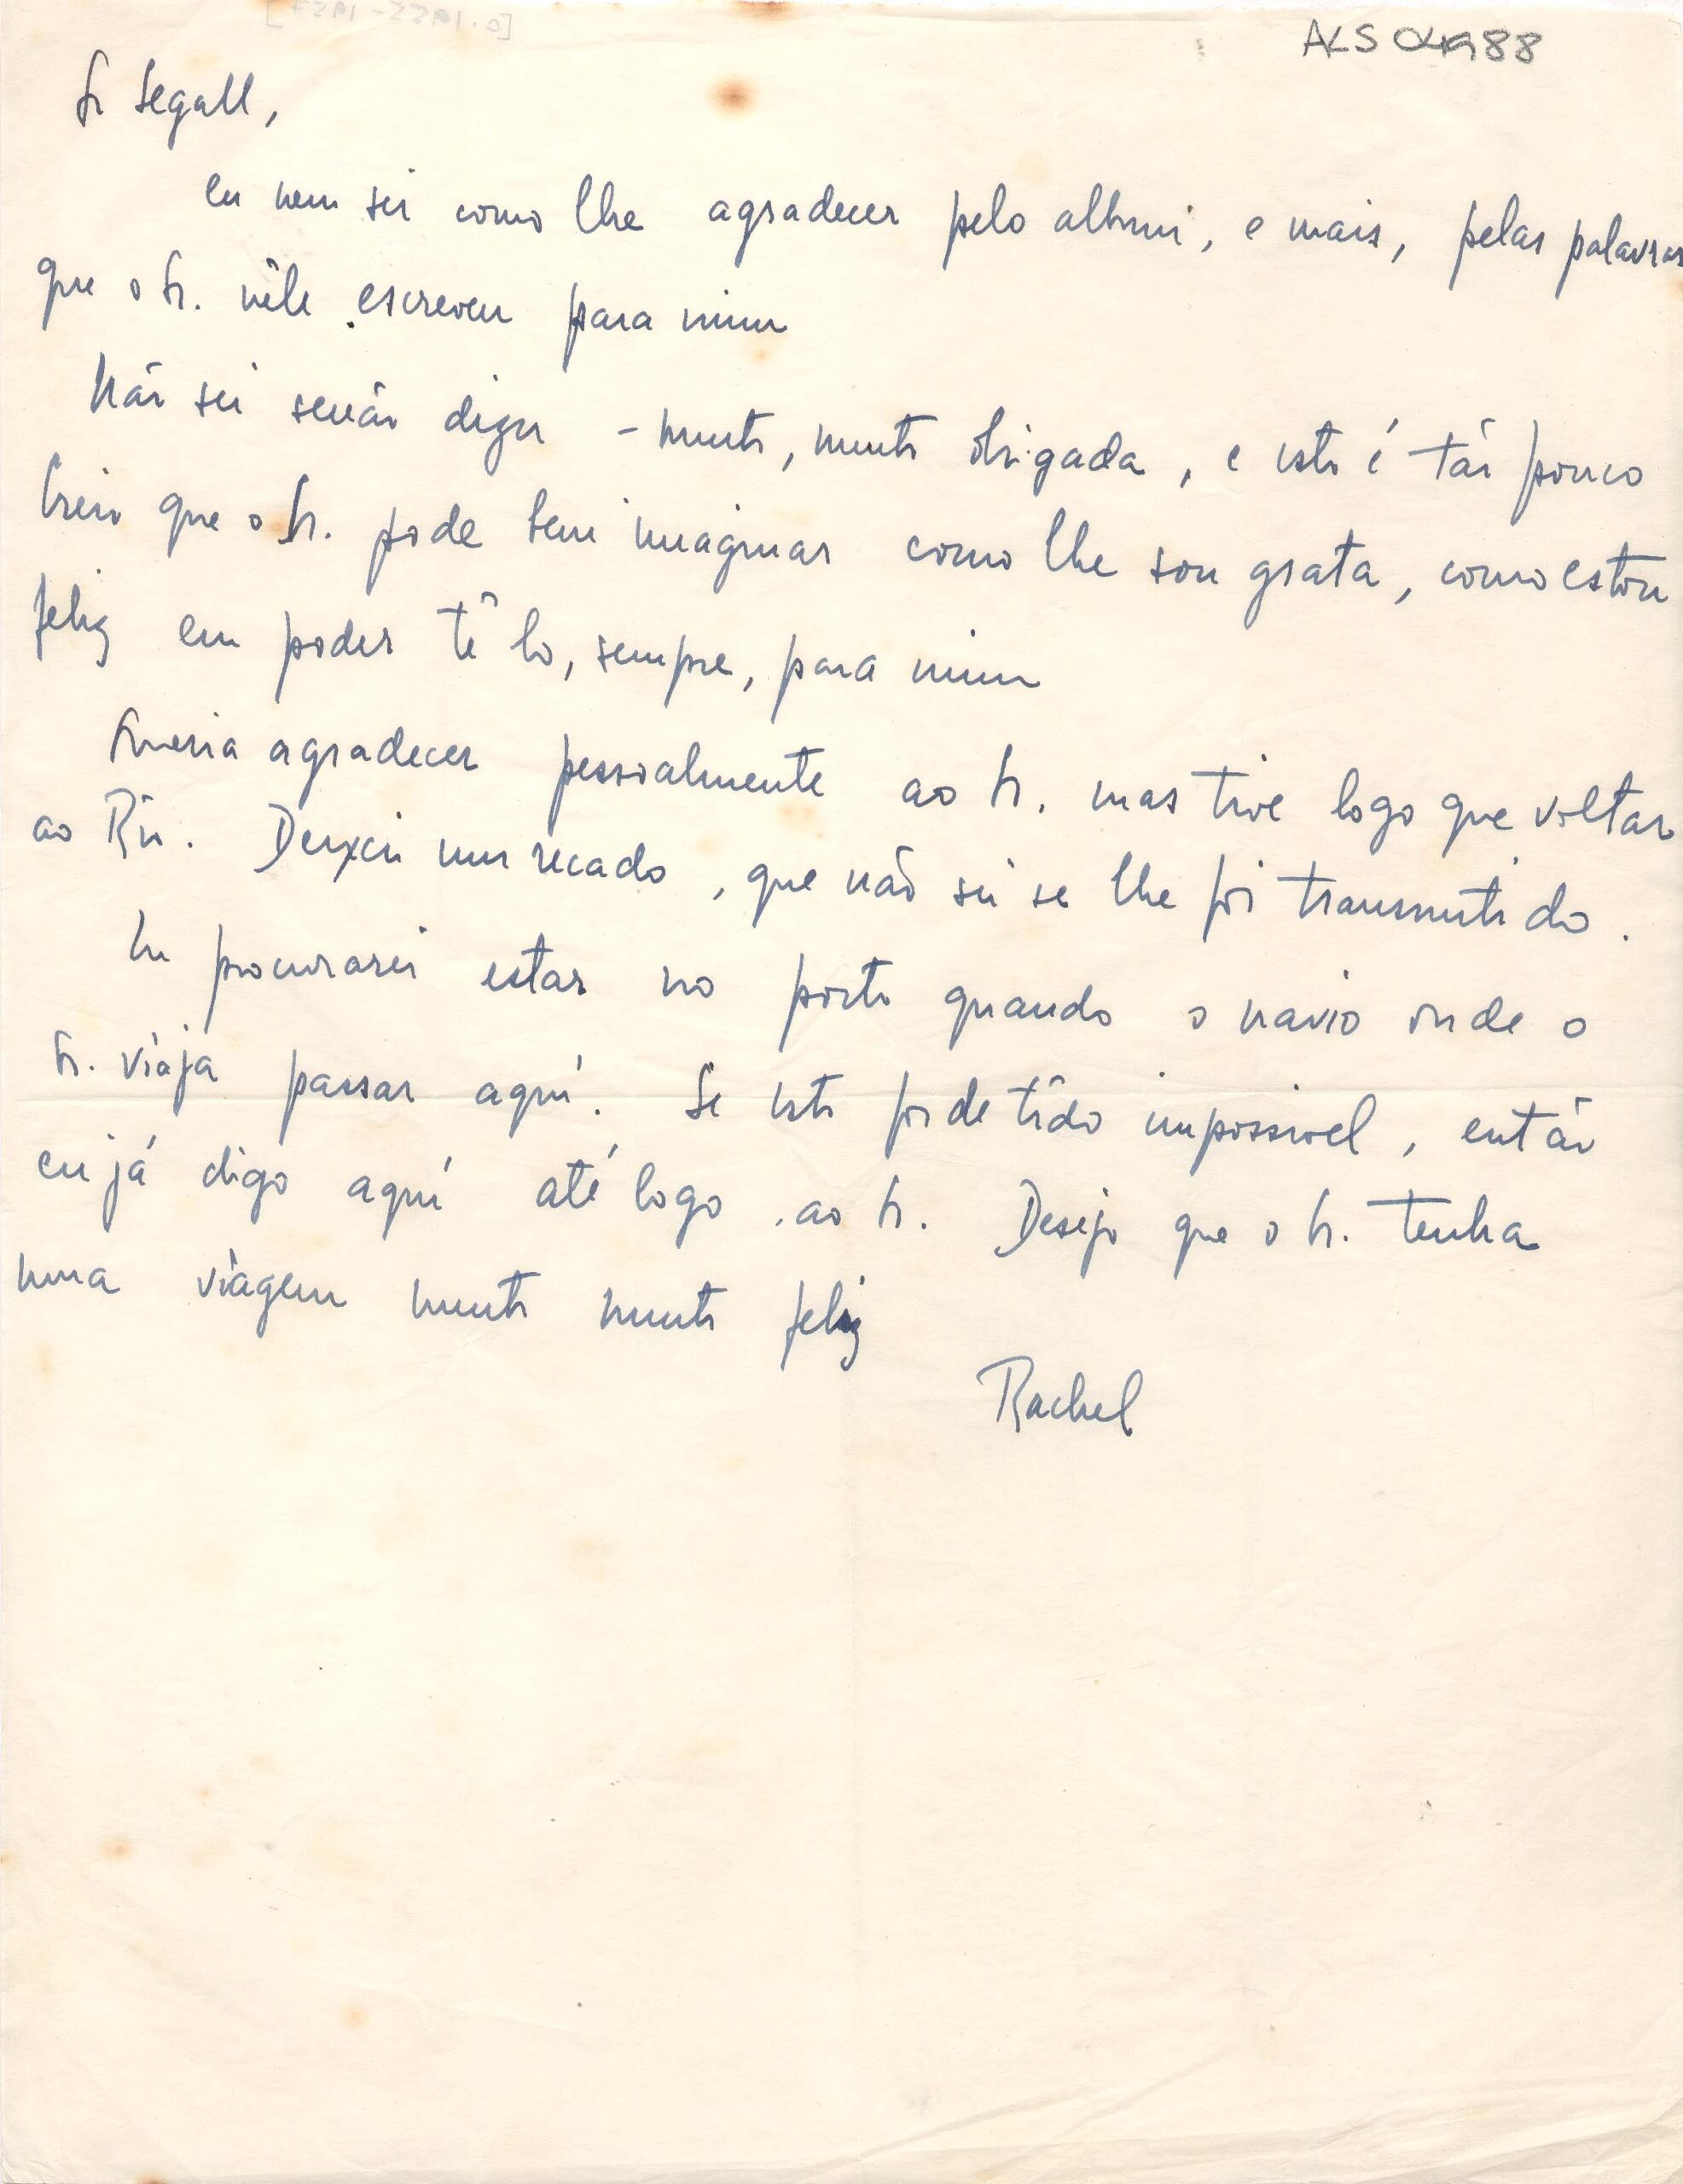 ALS 04988
Sr Segall,
Eu nem sei como lhe agradecer pelo album, e mais, pelas palavras
que o Sr. nêle escreveu para mim
Não sei senão dizer – muito, muito obrigada, e isto é tão pouco
Creio que o Sr. pode bem imaginar como lhe sou grata, como estou
feliz em poder tê lo, sempre, para mim
Queria agradecer pessoalmente ao Sr. mas tive logo que voltar
ao Rio. Deixei um recado, que não sei se lhe foi transmitido.
Eu procurarei estar no porto quando o navio onde o
Sr. viaja passar aquí. Se isto for de todo impossivel, então
eu já digo aquí até logo ao Sr. Desejo que o Sr. tenha
uma viagem muito muito feliz
Rachel